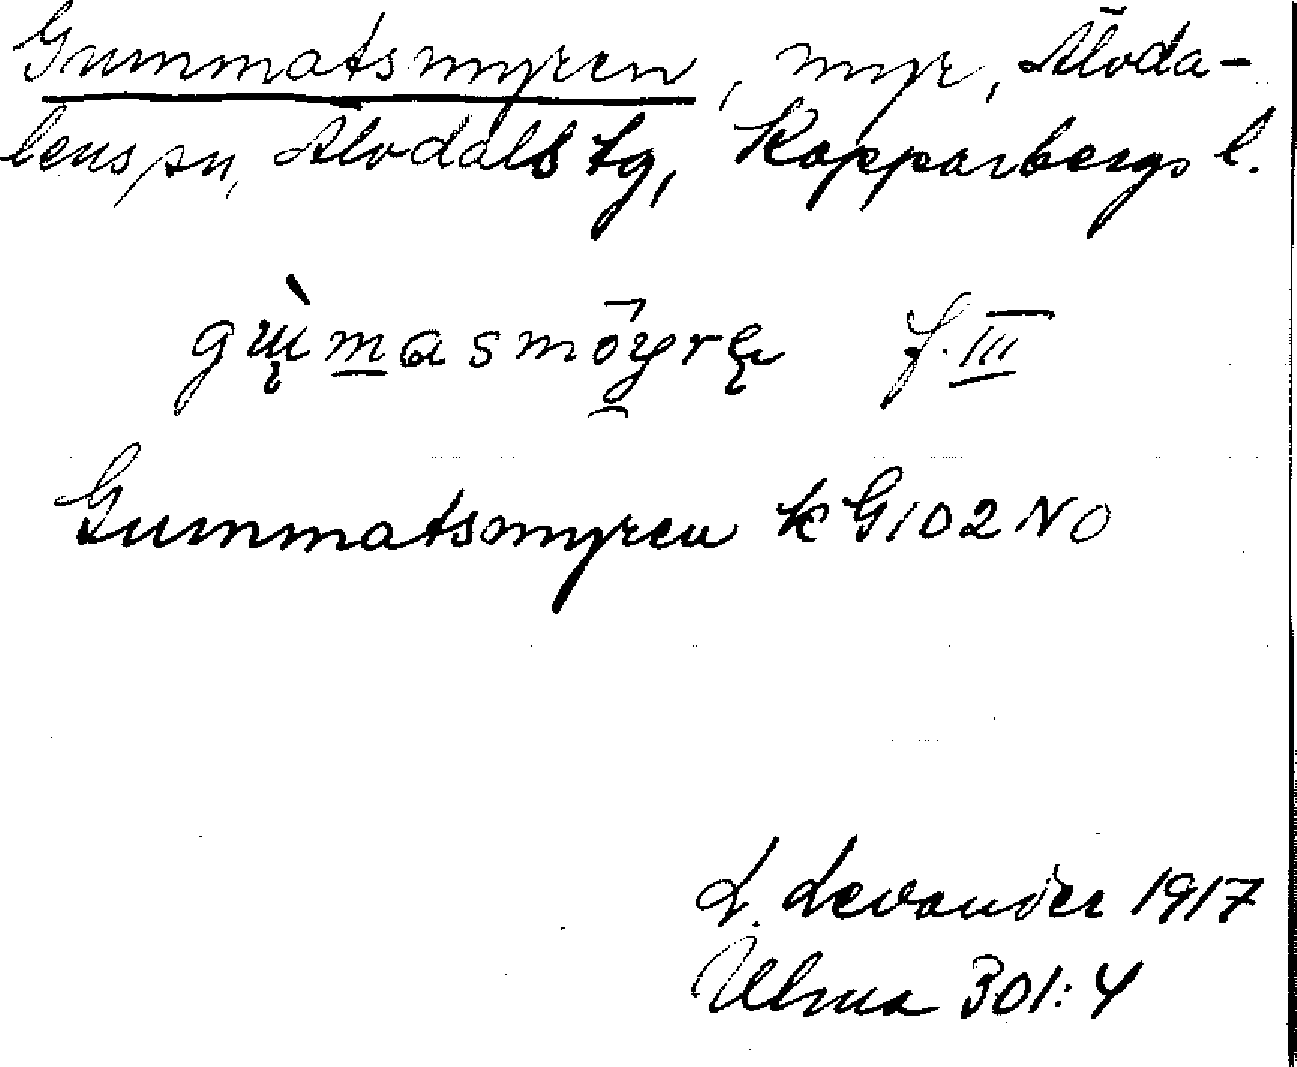 Gummatsmyren, myr, Älvda-
lens sn, Älvdals tg, Kopparbergs l.
gɯ̨̀m̲asmöyrę f. III
Gummatsmyren k G102NO
L. Levander 1917
Ulma 301:4